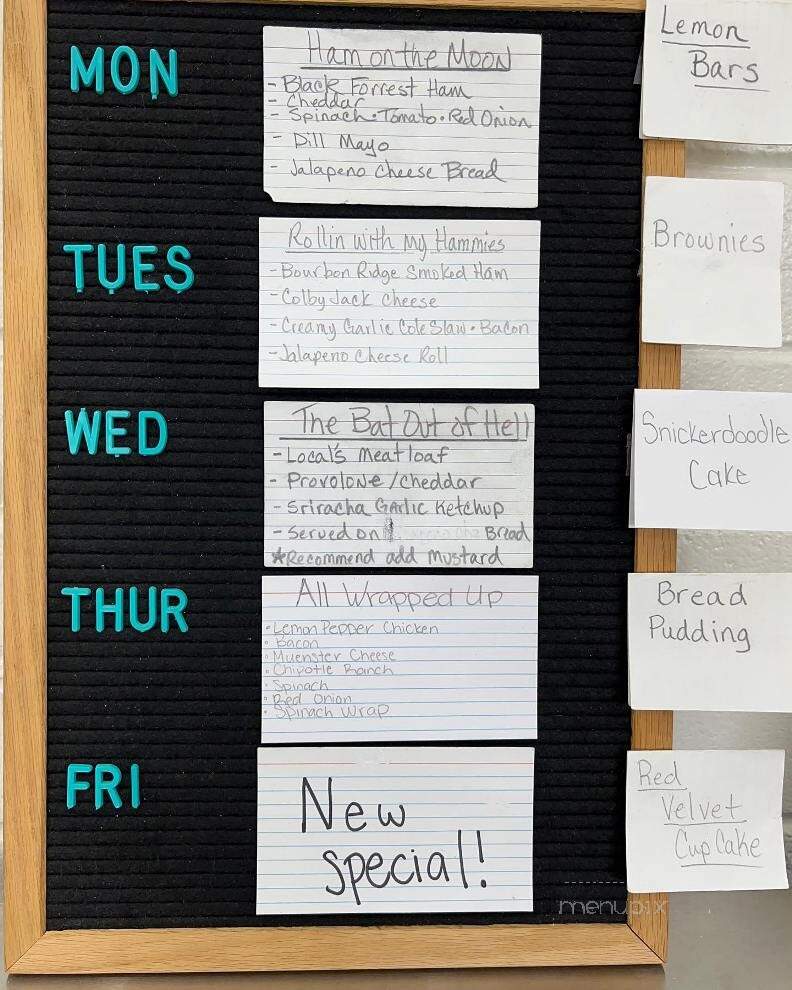 MON
Ham on the Moon
- Black Forrest Ham
- Cheddar
- Spinach • Tomato • Red Onion
- Dill Mayo
- Jalapeno Cheese Bread
Lemon
Bars
TUES
Rollin with my Hammies
- Bourbon Ridge Smoked Ham
- Colby Jack Cheese
- Creamy Garlic Cole Slaw • Bacon
- Jalapeno Cheese Roll
Brownies
WED
The Bat Out of Hell
- Local's Meatloaf
- Provolone / Cheddar
- Sriracha Garlic Ketchup
- Served on Bread
*Recommend add Mustard
Snickerdoodle
Cake
THUR
All Wrapped Up
• Lemon Pepper Chicken
• Bacon
• Muenster Cheese
• Chipotle Ranch
• Spinach
• Red Onion
• Spinach Wrap
Bread
Pudding
FRI
New
special!
Red
Velvet
Cup Cake
menupix